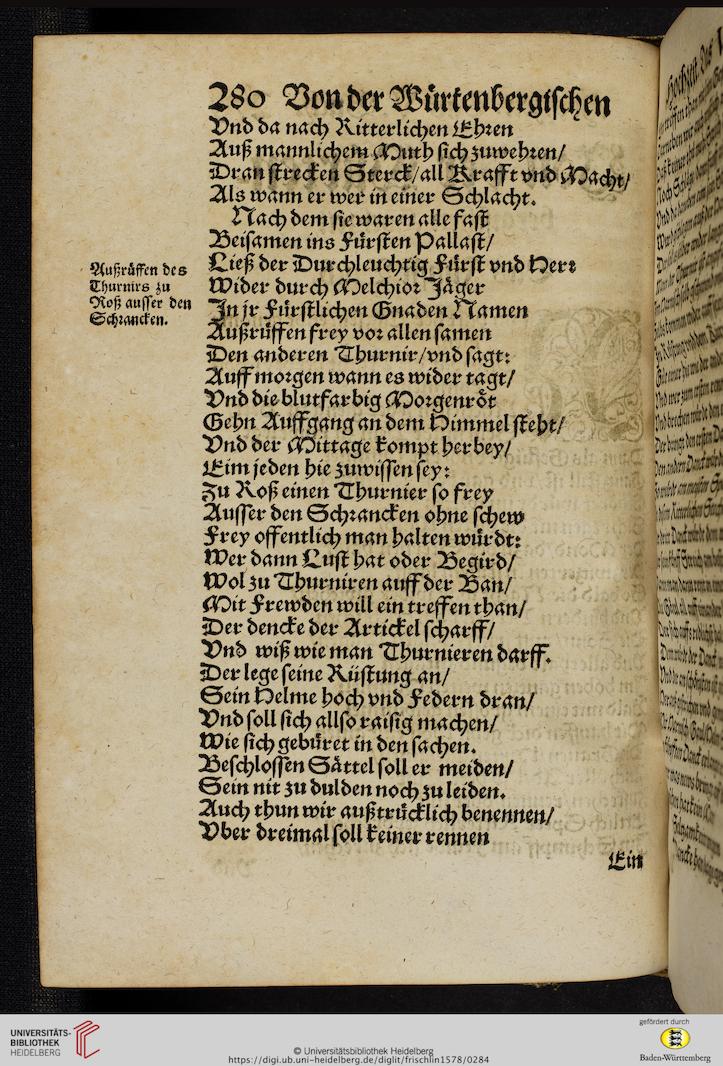 280 Von der Würtenbergischen
Vnd da nach Ritterlichen Ehren
Auß mannlichem Muth sich zuwehren/
Dran strecken Sterck/all Krafft vnd Macht/
Als wann er wer in einer Schlacht.
Nach dem sie waren alle fast
Beisamen ins Fürsten Pallast/
Außrüffen des
Thurnirs zu
Roß ausser den
Schrancken.
Ließ der Durchleuchtig Fürst vnd Herr
Wider durch Melchior Jäger
In jr Fürstlichen Gnaden Namen
Außrüffen frey vor allen samen
Den anderen Thurnir/vnd sagt:
Auff morgen wann es wider tagt/
Vnd die blutfarbig Morgenröt
Gehn Auffgang an dem Himmel steht/
Vnd der Mittage kompt herbey/
Eim jeden hie zuwissen sey:
Zu Roß einen Thurnier so frey
Ausser den Schrancken ohne schew
Frey offentlich man halten würdt:
Wer dann Lust hat oder Begird/
Wol zu Thurniren auff der Ban/
Mit Frewden will ein treffen than/
Der dencke der Artickel scharff/
Vnd wiß wie man Thurnieren darff.
Der lege seine Rüstung an/
Sein Helme hoch vnd Federn dran/
Vnd soll sich allso raisig machen/
Wie sich gebüret in den sachen.
Beschlossen Sättel soll er meiden/
Sein nit zu dulden noch zu leiden.
Auch thun wir außtrücklich benennen/
Vber dreimal soll keiner rennen
Ein
UNIVERSITÄTS-
BIBLIOTHEK
HEIDELBERG
© Universitätsbibliothek Heidelberg
https://digi.ub.uni-heidelberg.de/diglit/frischlin1578/0284
gefördert durch
Baden-Württemberg